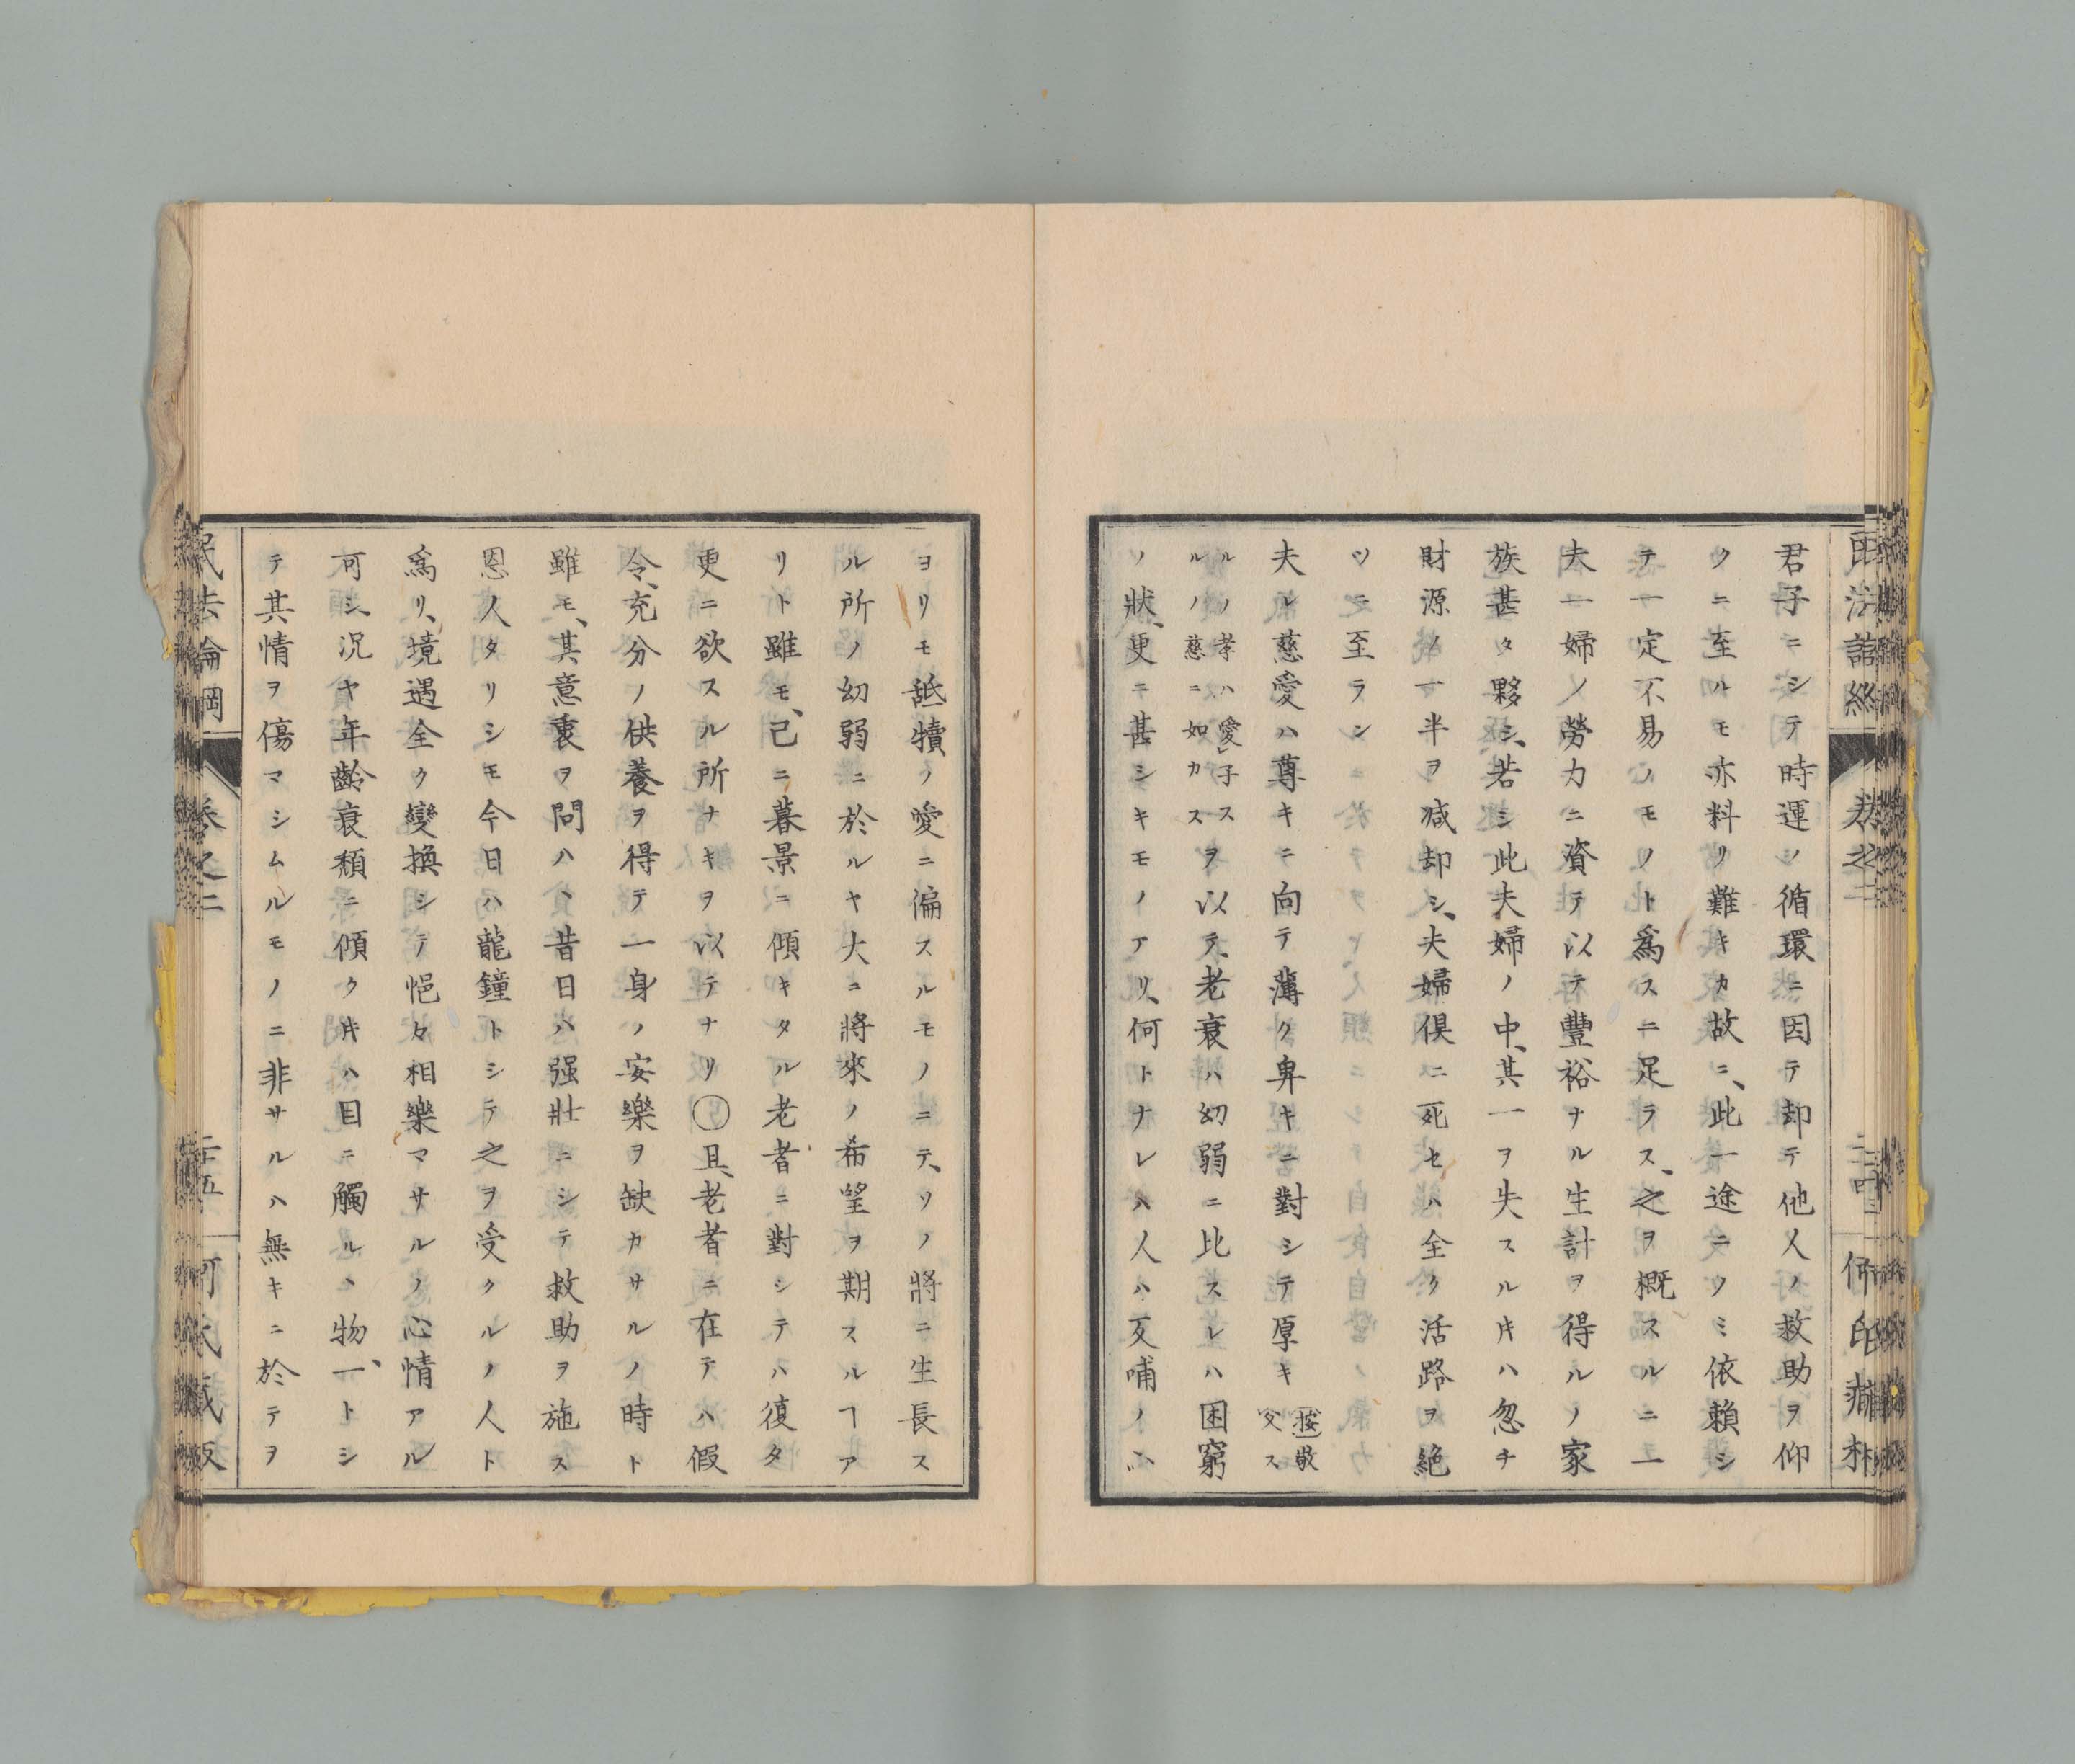 君子ニシテ時運ノ循環ニ因テ却テ他人ノ救助ヲ仰
クニ至ルモ亦料リ難キカ故ニ、此一途ニノミ依賴シ
テ一定不易ノモノト爲スニ足ラス、之ヲ概スルニ一
夫一婦ノ勞力ニ資テ以テ豐裕ナル生計ヲ得ルノ家
族甚タ夥シ、若シ此夫婦ノ中、其一ヲ失スル𪜈ハ忽チ
財源ノ一半ヲ减却シ、夫婦倶ニ死セハ全ク活路ヲ絶
ツニ至ラン
夫レ慈愛ハ尊キニ向テ薄ク卑キニ對シテ厚キ
按敬
父ス
ルノ孝ハ愛子ス
ルノ慈ニ如カス
ヲ以テ、老衰ハ幼弱ニ比スレハ困窮
ノ狀、更ニ甚シキモノアリ、何トナレハ人ハ反哺ノ心
民法論綱
卷之二
二十五
何氏藏版
ヨリモ舐犢ノ愛ニ偏スルモノニテ、ソノ將ニ生長ス
ル所ノ幼弱ニ於ルヤ大ニ將來ノ希望ヲ期スルヿア
リト雖モ、已ニ暮景ニ傾キタル老者ニ對シテハ復タ
更ニ欲スル所ナキヲ以テナリ〇且、老者ニ在テハ假
令、充分ノ供養ヲ得テ一身ノ安樂ヲ缺カサルノ時ト
雖モ、其意衷ヲ問ハヽ昔日ハ强壯ニシテ救助ヲ施ス
恩人タリシモ今日ハ龍鐘トシテ之ヲ受クルノ人ト
爲リ、境遇全ク變換シテ悒々相樂マサルノ心情アル
可シ、況ヤ年齡衰頽ニ傾ク𪜈ハ目ニ觸ルヽ物、一トシ
テ其情ヲ傷マシムルモノニ非サルハ無キニ於テヲ